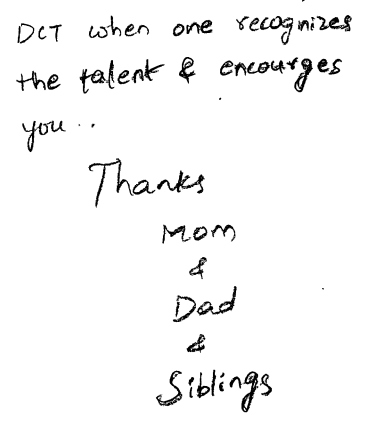 DCT when one recognizes
the talent & encourges
you..
Thanks
Mom
&
Dad
&
Siblings